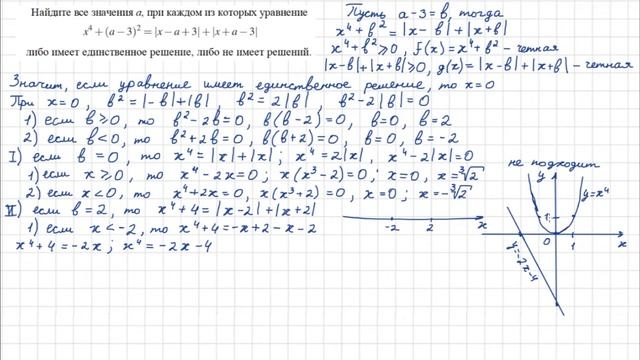 Найдите все значения a, при каждом из которых уравнение
x⁴ + (a − 3)² = |x − a + 3| + |x + a − 3|
либо имеет единственное решение, либо не имеет решений.
Пусть a-3=b, тогда
x⁴+b² = |x-b|+|x+b|
x⁴+b²⩾0, f(x)=x⁴+b² - четная
|x-b|+|x+b|⩾0, g(x)=|x-b|+|x+b| - четная
Значит, если уравнение имеет единственное решение, то x=0
При x=0, b²=|-b|+|b|, b²=2|b|, b²-2|b|=0
1) если b⩾0, то b²-2b=0, b(b-2)=0, b=0, b=2
2) если b<0, то b²+2b=0, b(b+2)=0, b=0, b=-2
I) если b=0, то x⁴=|x|+|x|; x⁴=2|x|, x⁴-2|x|=0
не подходит
1) если x⩾0, то x⁴-2x=0; x(x³-2)=0; x=0, x=∛2
2) если x<0, то x⁴+2x=0, x(x³+2)=0, x=0; x=-∛2
II) если b=2, то x⁴+4=|x-2|+|x+2|
1) если x<-2, то x⁴+4=-x+2-x-2
x⁴+4=-2x; x⁴=-2x-4
-2 2 x
y
y=x⁴
1
0 1 x
y=-2x-4